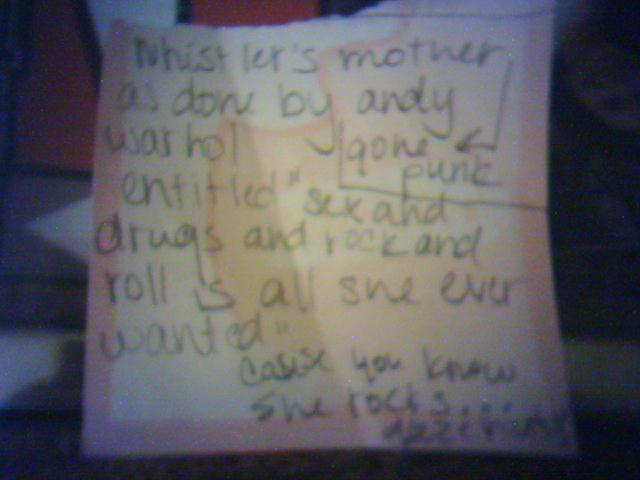 Whistler's mother
as done by andy
warhol gone
punk
entitled "sex and
drugs and rock and
roll is all she ever
wanted"
casue you know
she rocks...